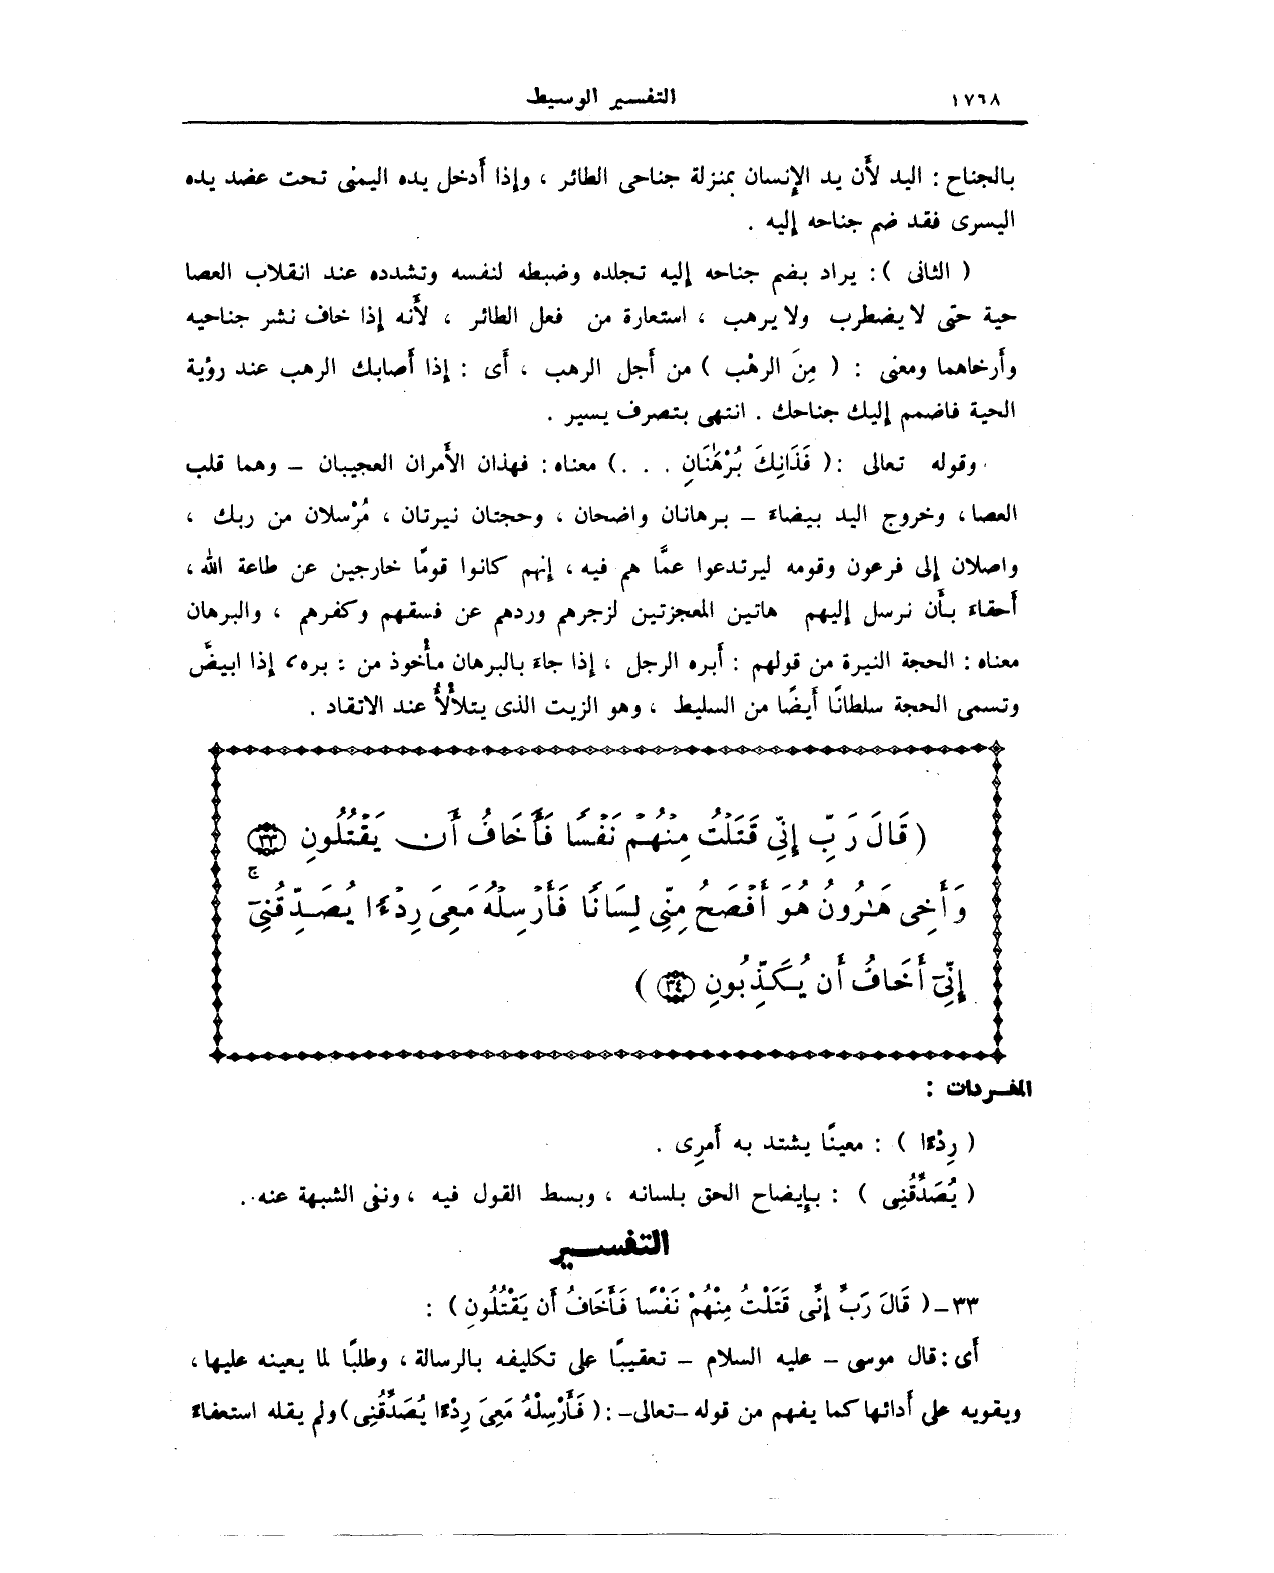 ١٧٦٨
التفسير الوسيط
بالجناح : اليد لأَن يد الإِنسان بمنزلة جناحى الطائر ، وإذا أَدخل يده اليمنى تحت عضد يده
اليسرى فقد ضم جناحه إِليه .
( الثانى ) : يراد بضم جناحه إليه تجلده وضبطه لنفسه وتشدده عند انقلاب العصا
حية حتى لا يضطرب ولا يرهب ، استعارة من فعل الطائر ، لأَنه إذا خاف نشر جناحيه
وأَرخاهما ومعنى : ( مِنَ الرهْب ) من أَجل الرهب ، أَى : إذا أَصابك الرهب عند رؤية
الحية فاضمم إليك جناحك . انتهى بتصرف يسير .
وقوله تعالى :( فَذَانِكَ بُرْهَٰنَانِ . . .) معناه : فهذان الأَمران العجيبان – وهما قلب
العصا ، وخروج اليد بيضاءَ – برهانان واضحان ، وحجتان نيرتان ، مُرْسلان من ربك ،
واصلان إِلى فرعون وقومه ليرتدعوا عمَّا هم فيه ، إِنهم كانوا قومًا خارجين عن طاعة الله ،
أَحقاءَ بأَن نرسل إليهم هاتين المعجزتين لزجرهم وردهم عن فسقهم وكفرهم ، والبرهان
معناه : الحجة النيرة من قولهم : أَبره الرجل ، إذا جاءَ بالبرهان مأْخوذ من : بره ، إذا ابيضَّ
وتسمى الحجة سلطانًا أَيضًا من السليط ، وهو الزيت الذى يتلأْلأُ عند الاتقاد .
( قَالَ رَبِّ إِنِّي قَتَلْتُ مِنْهُمْ نَفْسًا فَأَخَافُ أَن يَقْتُلُونِ ٣٣
وَأَخِى هَـٰرُونُ هُوَ أَفْصَحُ مِنِّى لِسَانًا فَأَرْسِلْهُ مَعِىَ رِدْءًا يُصَدِّقُنِىٓ ۖ
إِنِّىٓ أَخَافُ أَن يُكَذِّبُونِ ٣٤ )
المفـردات :
( رِدْءًا ) : معينًا يشتد به أَمرِى .
( يُصَدِّقُنِى ) : بإِيضاح الحق بلسانه ، وبسط القول فيه ، ونفى الشبهة عنه .
التفسـير
٣٣ – ( قَالَ رَبِّ إِنِّى قَتَلْتُ مِنْهُمْ نَفْسًا فَأَخَافُ أَن يَقْتُلُونِ ) :
أَى : قال موسى – عليه السلام – تعقيبًا على تكليفه بالرسالة ، وطلبًا لما يعينه عليها ،
ويقويه على أَدائها كما يفهم من قوله –تعالى– : ( فَأَرْسِلْهُ مَعِىَ رِدْءًا يُصَدِّقُنِى ) ولم يقله استعفاءً